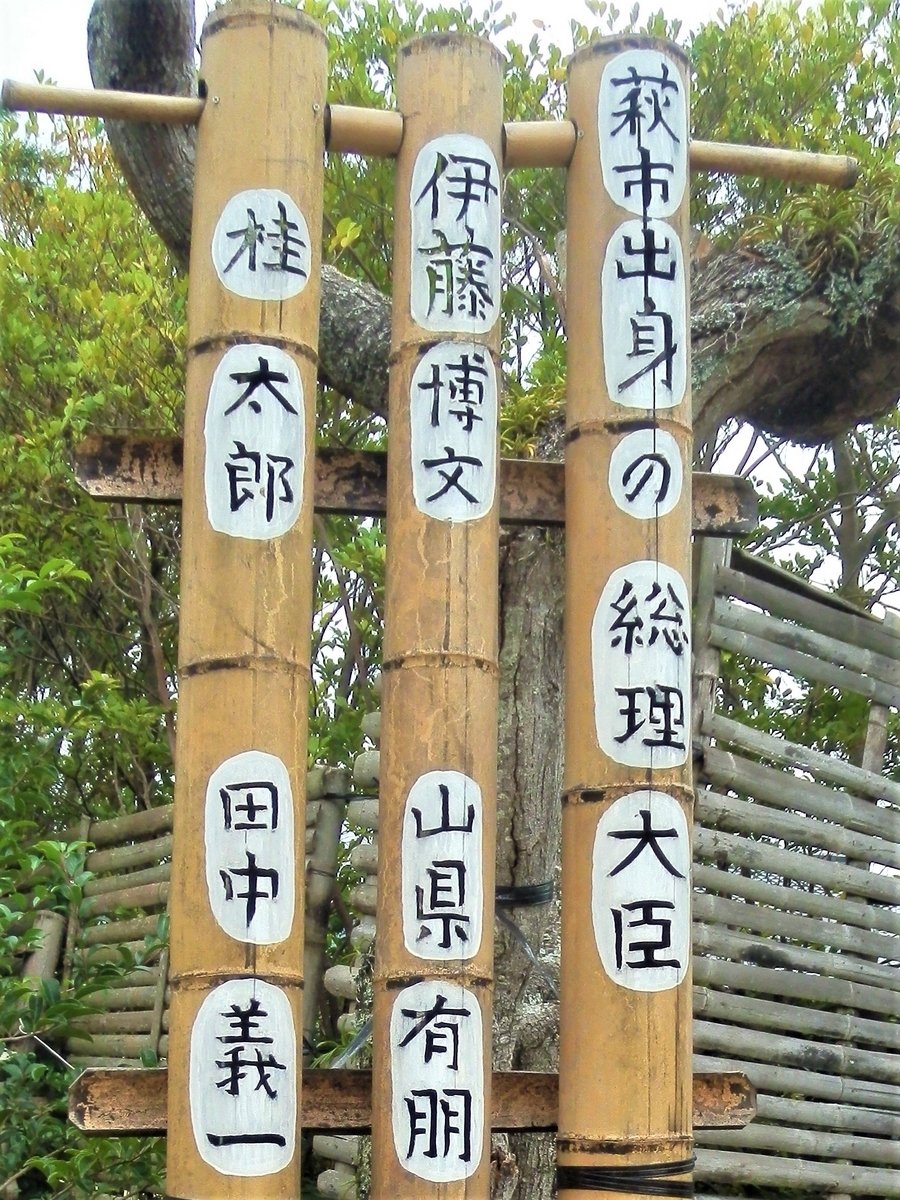 萩市出身の総理大臣
伊藤博文
山県有朋
桂太郎
田中義一